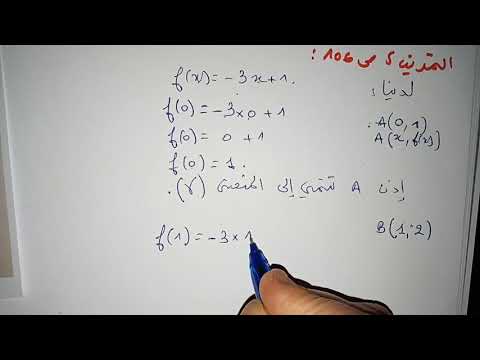 التمرين 5 ص 106 :
لدينا:
f(x) = -3x+1.
f(0) = -3×0 + 1
A(0,1)
f(0) = 0 +1
A(x, f(x))
f(0) = 1.
إذن A تنتمي إلى المنحنى (γ).
B(1;-2)
f(1) = -3 × 1